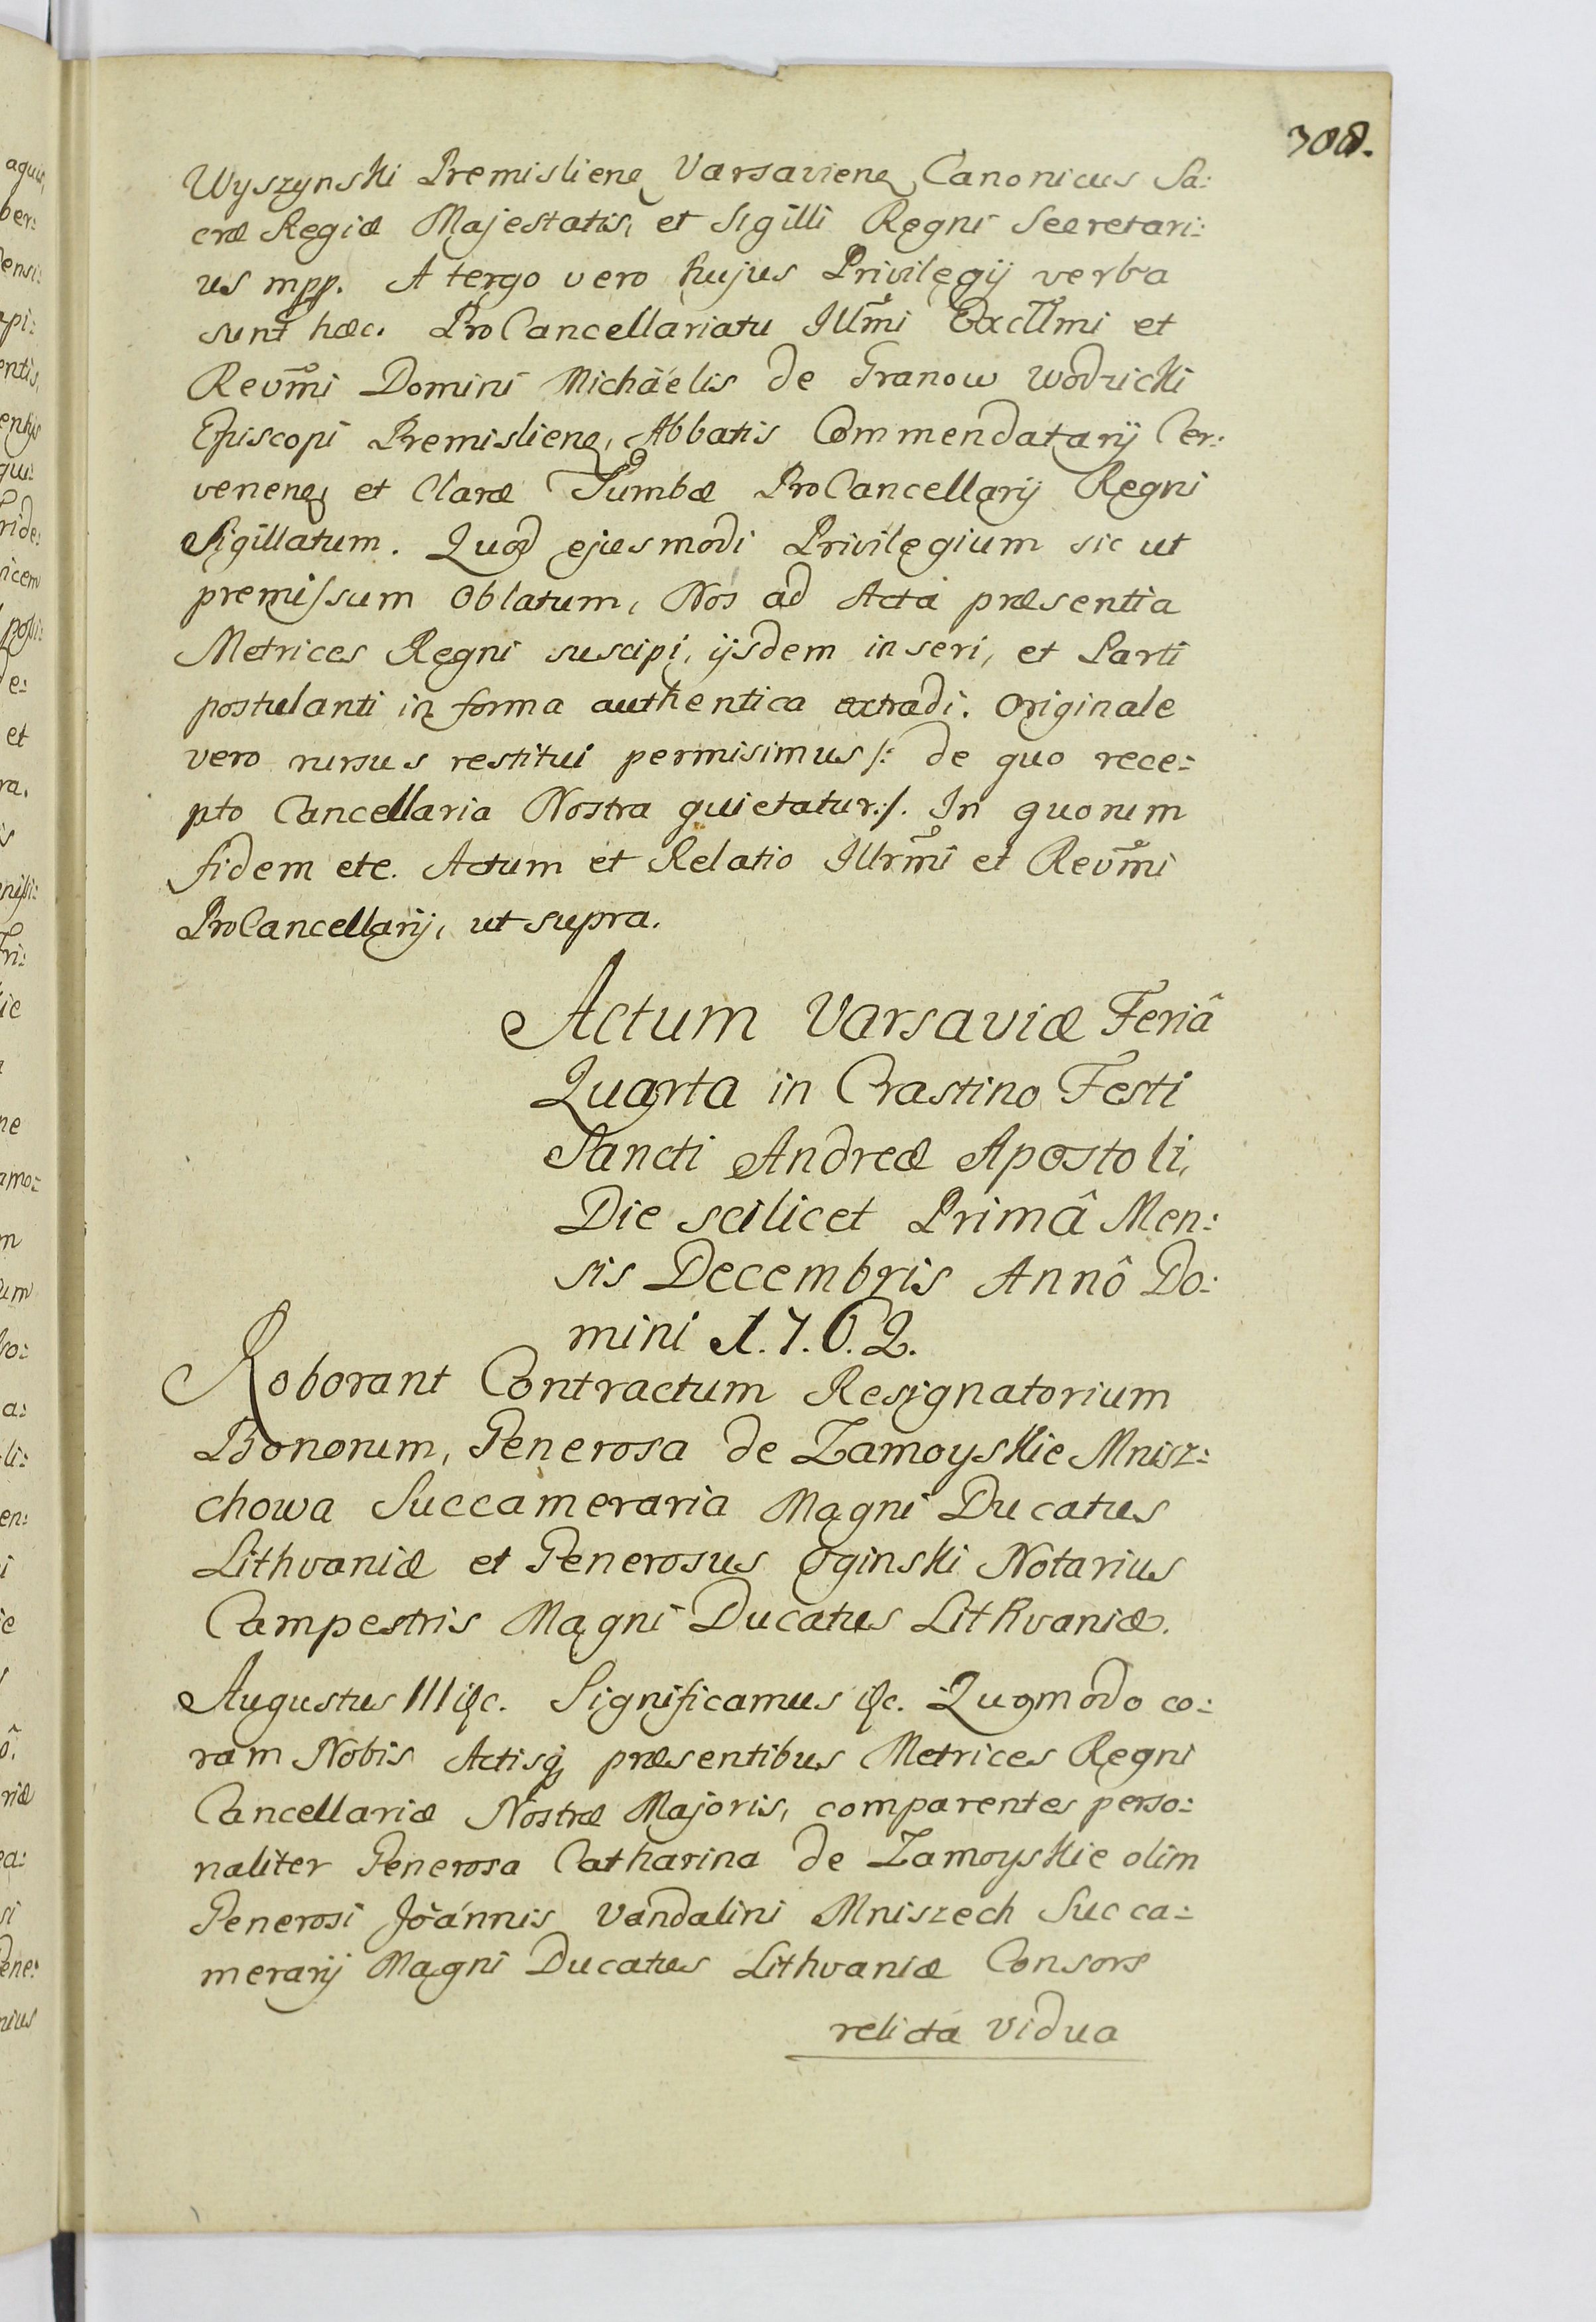 308.
Wyszynski Premislienę Varsavienę Canonicus Sa:
cræ Regiæ Majestatis, et Sigilli Regni Secretari:
us mpp. A tergo vero hujus Privilegij verba
sunt hæc. ProCancellariatu Illm̃i Excllm̃i et
Revm̃i Domini Michäelis de Granow Wodzicki
Episcopi Premislienę, Abbatis Commendatarij Cer:
venenę et Claræ Tumbæ ProCancellarij Regni
Sigillatum. Quod ejusmodi Privilegium sic ut
premissum Oblatum, Nos ad Acta præsentia
Metrices Regni suscipi, ijsdem inseri, et Parti
postulanti in forma authentica extradi. Originale
vero rursus restitui permisimus /: de quo rece:
pto Cancellaria Nostra quietatur:/. In quorum
fidem etc. Actum et Relatio Illrm̃i et Revm̃i
ProCancellarij, ut supra.
Actum Varsaviæ Feriâ
Quarta in Crastino Festi
Sancti Andreæ Apostoli,
Die scilicet Primâ Men:
sis Decembris Annô Do:
mini 1.7.6.2.
Roborant Contractum Resignatorium
Bonorum, Generosa de Zamoyskie Mnisz:
chowa Succameraria Magni Ducatus
Lithvaniæ et Generosus Oginski Notarius
Campestris Magni Ducatus Lithvaniæ.
Augustus III &c. Significamus &c. Quomodo co:
ram Nobis Actisq præsentibus Metrices Regni
Cancellariæ Nostræ Majoris, comparentes perso:
naliter Generosa Catharina de Zamoyskie olim
Generosi Joánnis Vandalini Mniszech Succa:
merarij Magni Ducatus Lithvaniæ Consors
relicta Vidua